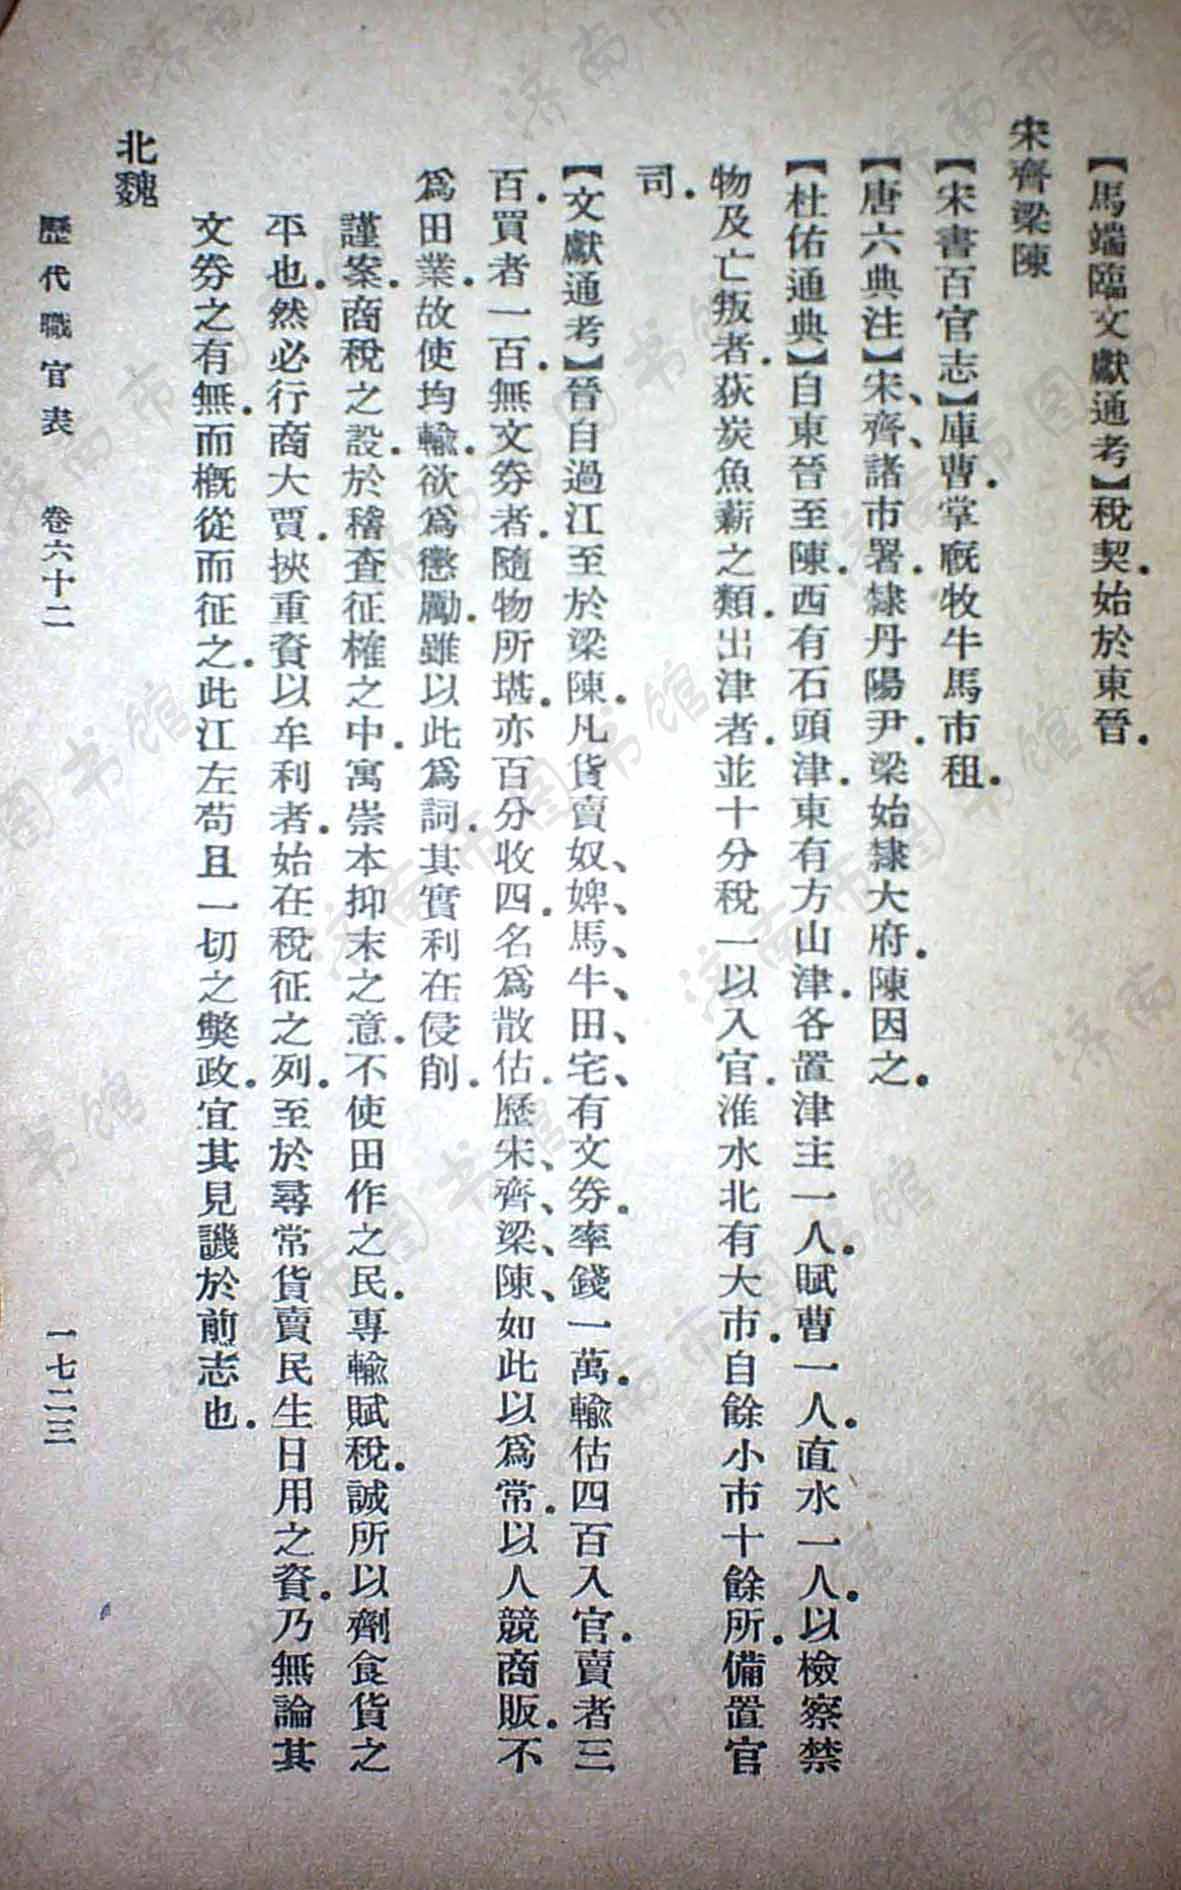 【馬端臨文獻通考】稅契.始於東晉.
宋齊梁陳
【宋書百官志】庫曹.掌廐牧牛馬市租.
【唐六典注】宋、齊、諸市署.隸丹陽尹.梁始隸大府.陳因之.
【杜佑通典】自東晉至陳.西有石頭津.東有方山津.各置津主一人.賊曹一人.直水一人.以檢察禁
物及亡叛者.荻炭魚薪之類.出津者.並十分稅一以入官.淮水北有大市.自餘小市十餘所.備置官
司.
【文獻通考】晉自過江至於梁陳.凡貨賣奴、婢、馬、牛、田、宅、有文券.率錢一萬.輸估四百入官.賣者三
百.買者一百.無文券者.隨物所堪.亦百分收四.名爲散估.歷宋、齊、梁、陳、如此以爲常.以人競商販.不
爲田業.故使均輸.欲爲懲勵.雖以此爲詞.其實利在侵削.
謹案.商稅之設.於稽查征榷之中.寓崇本抑末之意.不使田作之民.專輸賦稅.誠所以劑食貨之
平也.然必行商大賈.挾重資以牟利者.始在稅征之列.至於尋常貨賣民生日用之資.乃無論其
文券之有無.而概從而征之.此江左苟且一切之弊政.宜其見譏於前志也.
北魏
歷代職官表 卷六十二 一七二三
济南市图书馆